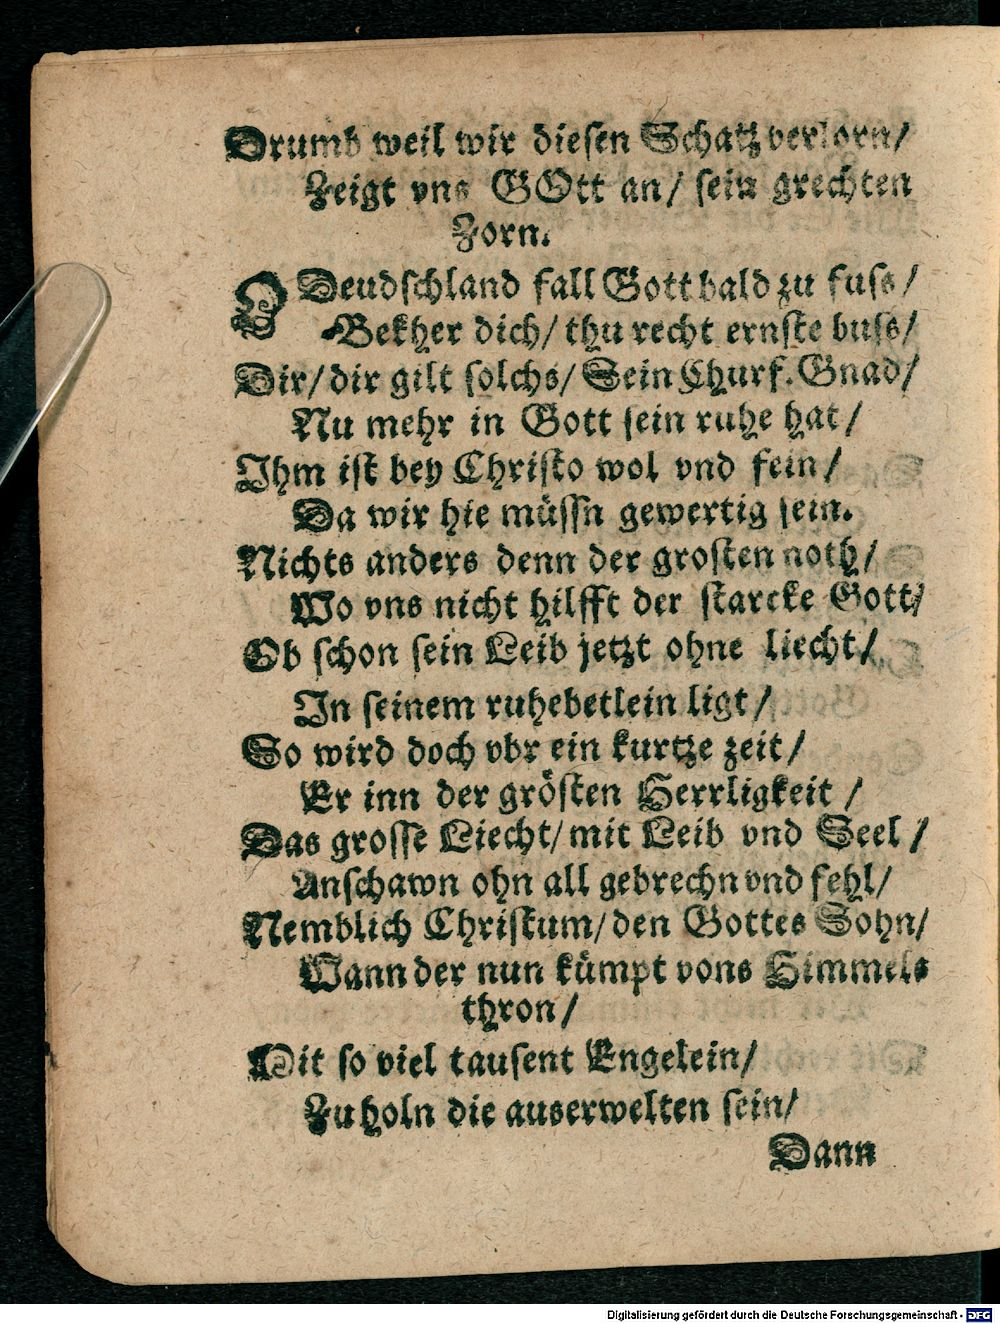 Drumb weil wir diesen Schatz verlorn/
Zeigt vns GOtt an/ sein grechten
Zorn.
O Deudschland fall Gott bald zu fuss/
Bekher dich/ thu recht ernste buss/
Dir/ dir gilt solchs/ Sein Churf. Gnad/
Nu mehr in Gott sein ruhe hat/
Ihm ist bey Christo wol vnd fein/
Da wir hie müssn gewertig sein.
Nichts anders denn der grosten noth/
Wo vns nicht hilfft der starcke Gott/
Ob schon sein Leib jetzt ohne liecht/
In seinem ruhebetlein ligt/
So wird doch vbr ein kurtze zeit/
Er inn der grösten Herrligkeit /
Das grosse Liecht/ mit Leib vnd Seel /
Anschawn ohn all gebrechn vnd fehl/
Nemblich Christum/ den Gottes Sohn/
Wann der nun kümpt vons Himmels
thron/
Mit so viel tausent Engelein/
Zu holn die auserwelten sein/
Dann
Digitalisierung gefördert durch die Deutsche Forschungsgemeinschaft - DFG